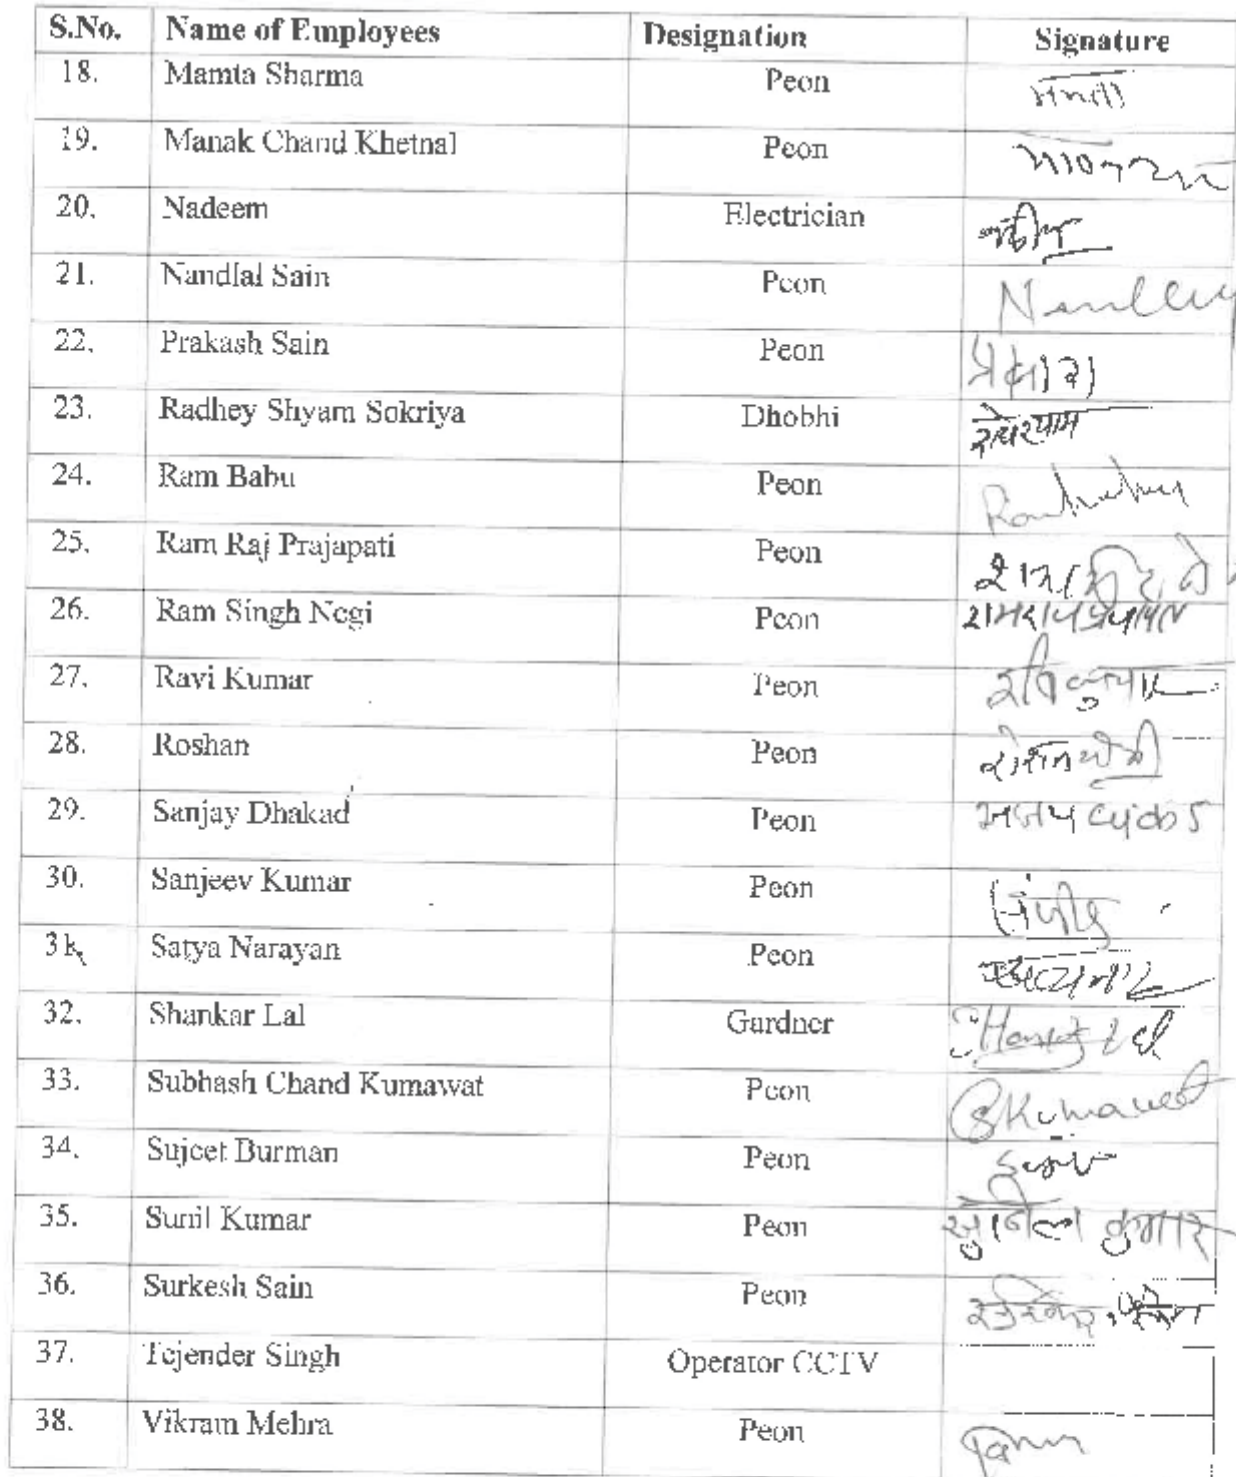 S.No. Name of Employees Designation Signature
18. Mamta Sharma Peon ममता
19. Manak Chand Khetnal Peon
20. Nadeem Electrician नदीम
21. Nandlal Sain Peon
22. Prakash Sain Peon
23. Radhey Shyam Sokriya Dhobhi
24. Ram Babu Peon
25. Ram Raj Prajapati Peon
26. Ram Singh Negi Peon
27. Ravi Kumar Peon रवि कुमार
28. Roshan Peon
29. Sanjay Dhakad Peon
30. Sanjeev Kumar Peon
31. Satya Narayan Peon
32. Shankar Lal Gardner
33. Subhash Chand Kumawat Peon SKumawat
34. Sujeet Burman Peon
35. Sunil Kumar Peon सुनिल कुमार
36. Surkesh Sain Peon
37. Tejender Singh Operator CCTV
38. Vikram Mehra Peon